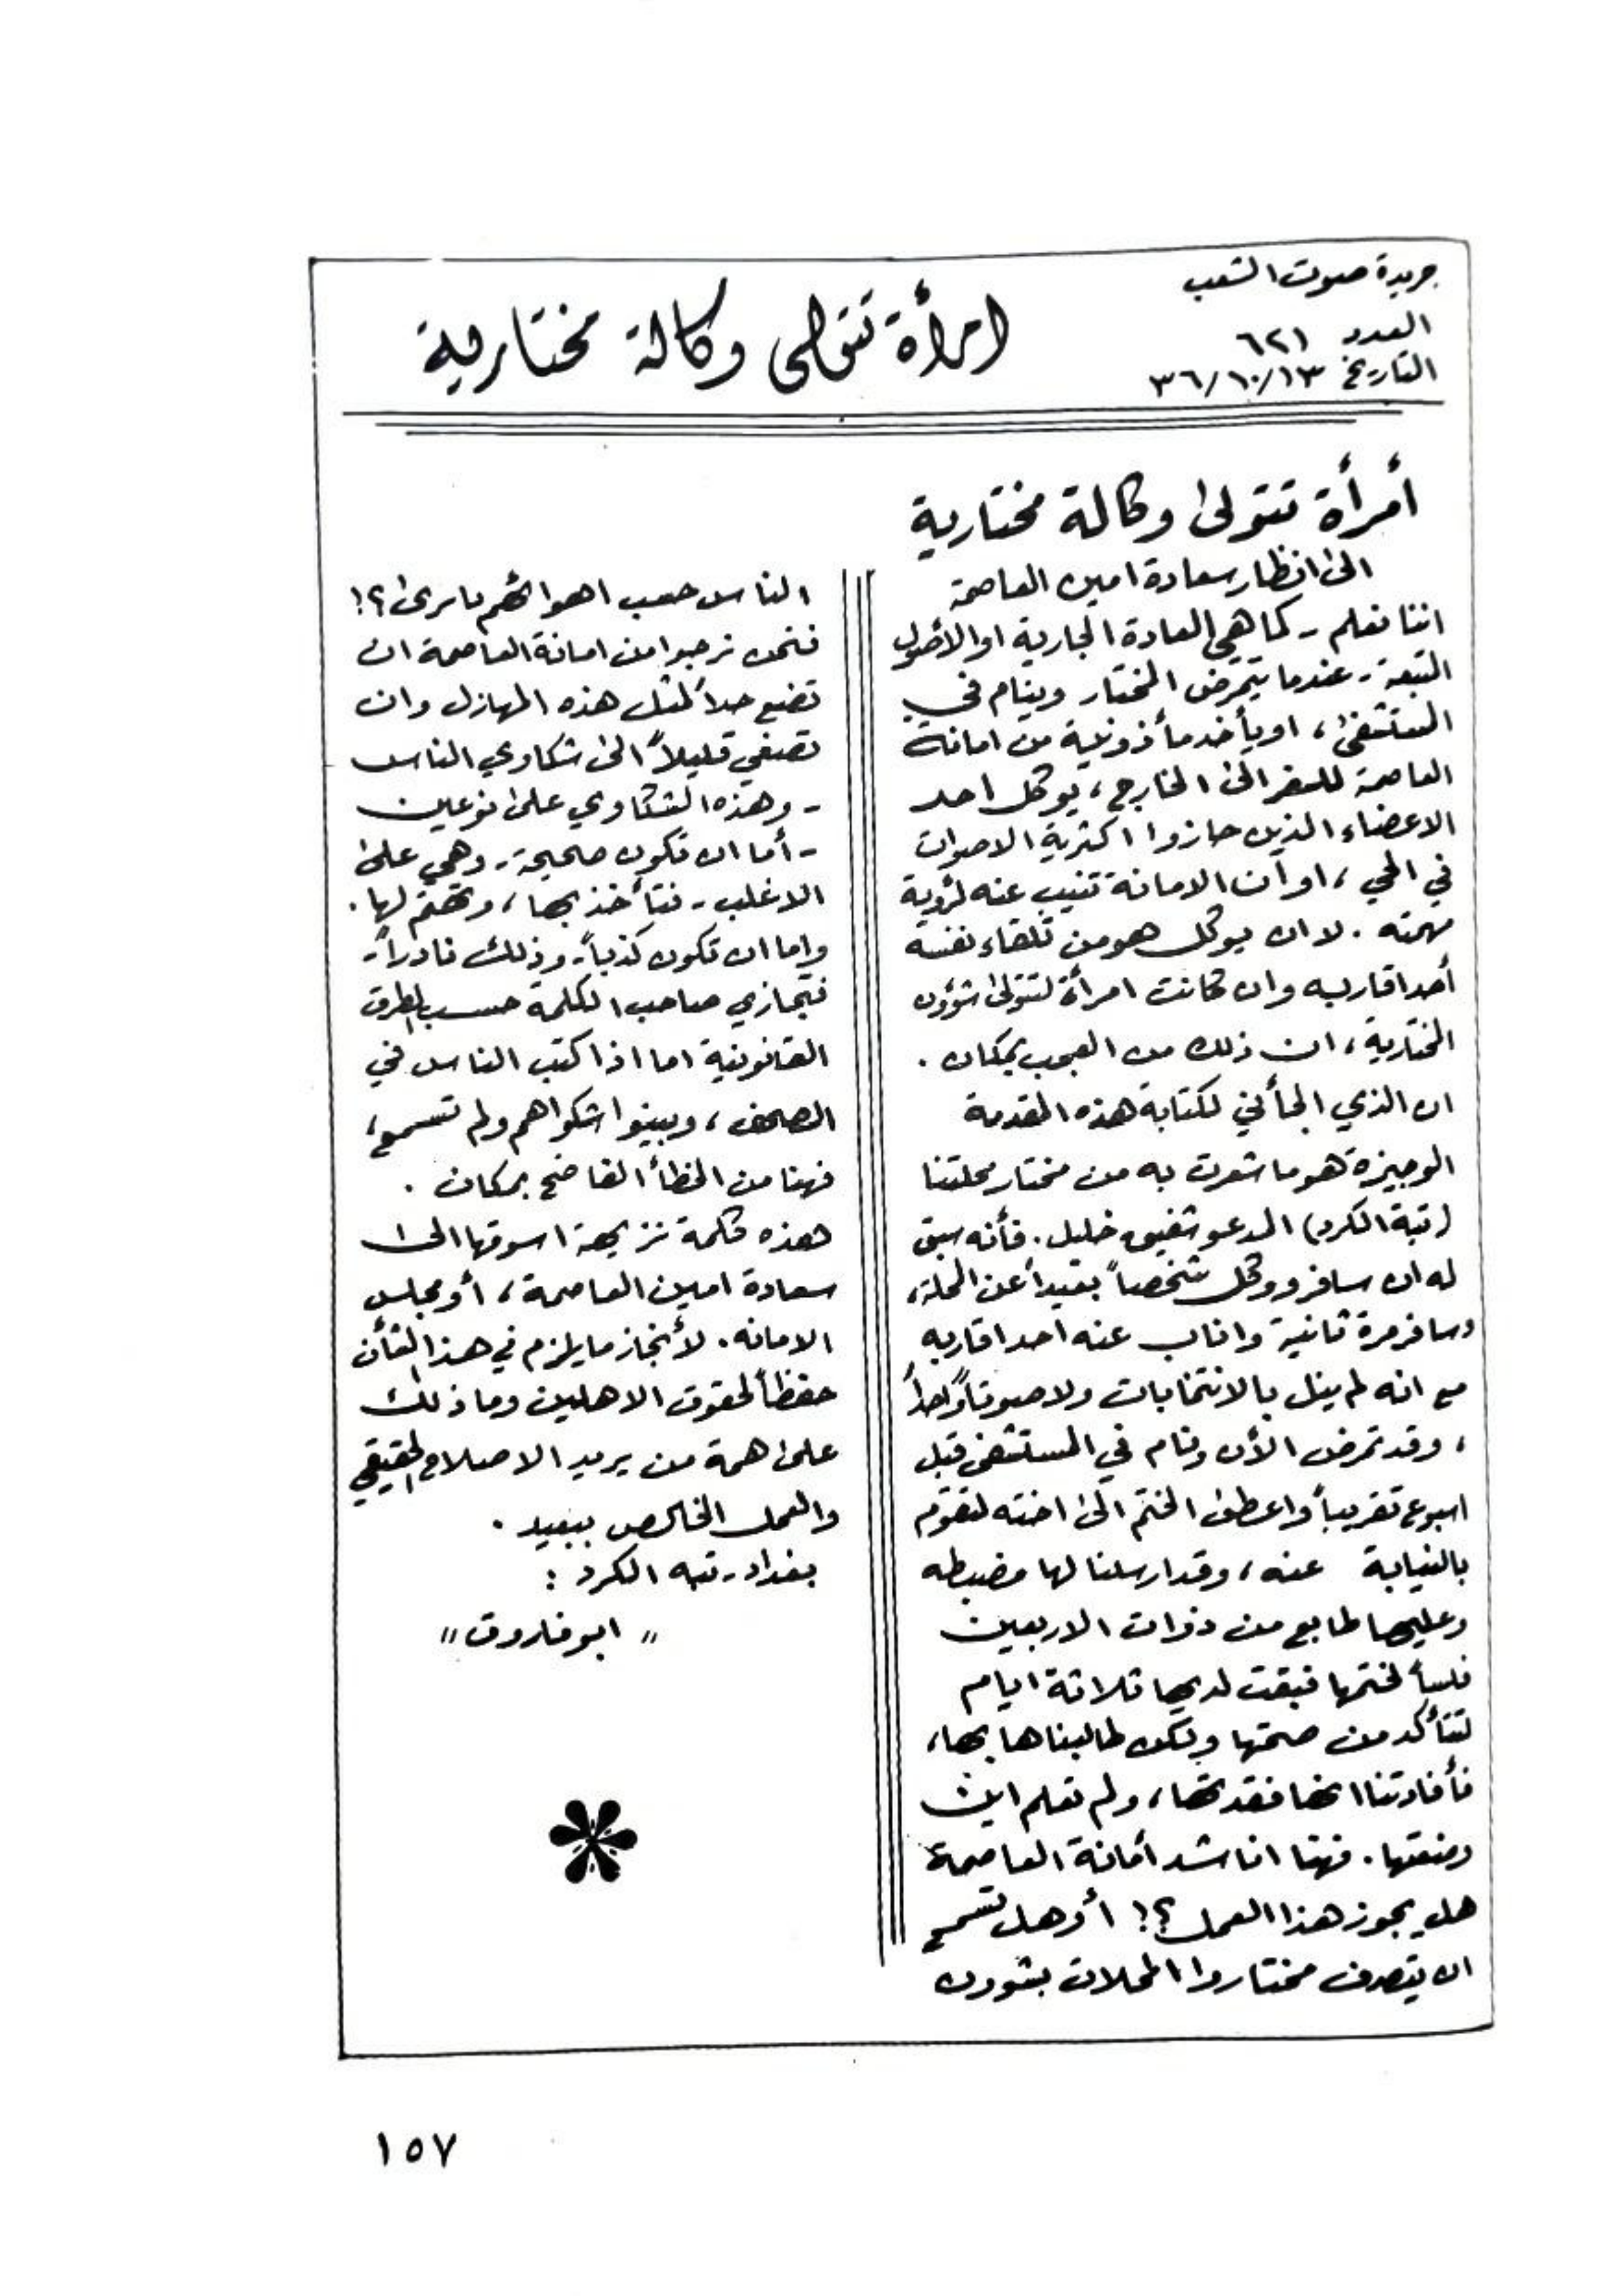 جريدة صوت الشعب
العدد ٦٢١
التاريخ ٣٦/١٠/١٣
امرأة تتولى وكالة مختارية
أمرأة تتولى وكالة مختارية
الى انظار سعادة امين العاصمة
اننا نعلم - كما هي العادة الجارية او الأصول
المتبعة - عندما يتمرض المختار وينام في
المستشفى ، او يأخذ مأذونية من امانة
العاصمة للسفر الى الخارج ، يوكل احد
الاعضاء الذين حازوا اكثرية الاصوات
في الحي ، او ان الامانة تنيب عنه لرؤية
مهمته . لا ان يوكل هو من تلقاء نفسه
أحد اقاربه وان كانت امرأة لتتولى شؤون
المختارية ، ان ذلك من العجب بمكان .
ان الذي الجأني لكتابة هذه المقدمة
الوجيزة هو ما شعرت به من مختار محلتنا
(تبة الكرد) المدعو شفيق خليل . فأنه سبق
له ان سافر ووكل شخصاً بعيداً عن المحلة ،
وسافر مرة ثانية واناب عنه احد اقاربه
مع انه لم ينل بالانتخابات ولا صوتاً واحداً
، وقد تمرض الأن ونام في المستشفى قبل
اسبوع تقريباً واعطى الختم الى اخته لتقوم
بالنيابة عنه ، وقد ارسلنا لها مضبطه
وعليها طابع من ذوات الاربعين
فلساً لختمها فبقت لديها ثلاثة ايام
لتتأكد من صحتها ولكن طالبناها بها ،
فأفادتنا انها فقدتها ، ولم تعلم اين
وضعتها . فهنا اناشد أمانة العاصمة
هل يجوز هذا العمل ؟! أو هل تسمح
ان يتصرف مختاروا المحلات بشؤون
الناس حسب اهوائهم يا ترى ؟!
فنحن نرجوا من امانة العاصمة ان
تضع حداً لمثل هذه المهازل وان
تصغي قليلاً الى شكاوي الناس
- وهذه الشكاوي على نوعين
- أما ان تكون صحيحة - وهي على
الاغلب - فتأخذ بها ، وتهتم لها .
واما ان تكون كذباً - وذلك نادراً -
فتجازي صاحب الكلمة حسب الطرق
القانونية اما اذا كتب الناس في
الصحف ، وبينوا شكواهم ولم تسمع ،
فهنا من الخطأ الفاضح بمكان .
هذه كلمة نزيهة اسوقها الى
سعادة امين العاصمة ، أو مجلس
الامانه . لأنجاز ما يلزم في هذا الشأن
حفظاً لحقوق الاهلين وما ذلك
على همة من يريد الاصلاح الحقيقي
والعمل الخالص ببعيد .
بغداد - تبه الكرد :
" ابو فاروق "
١٥٧